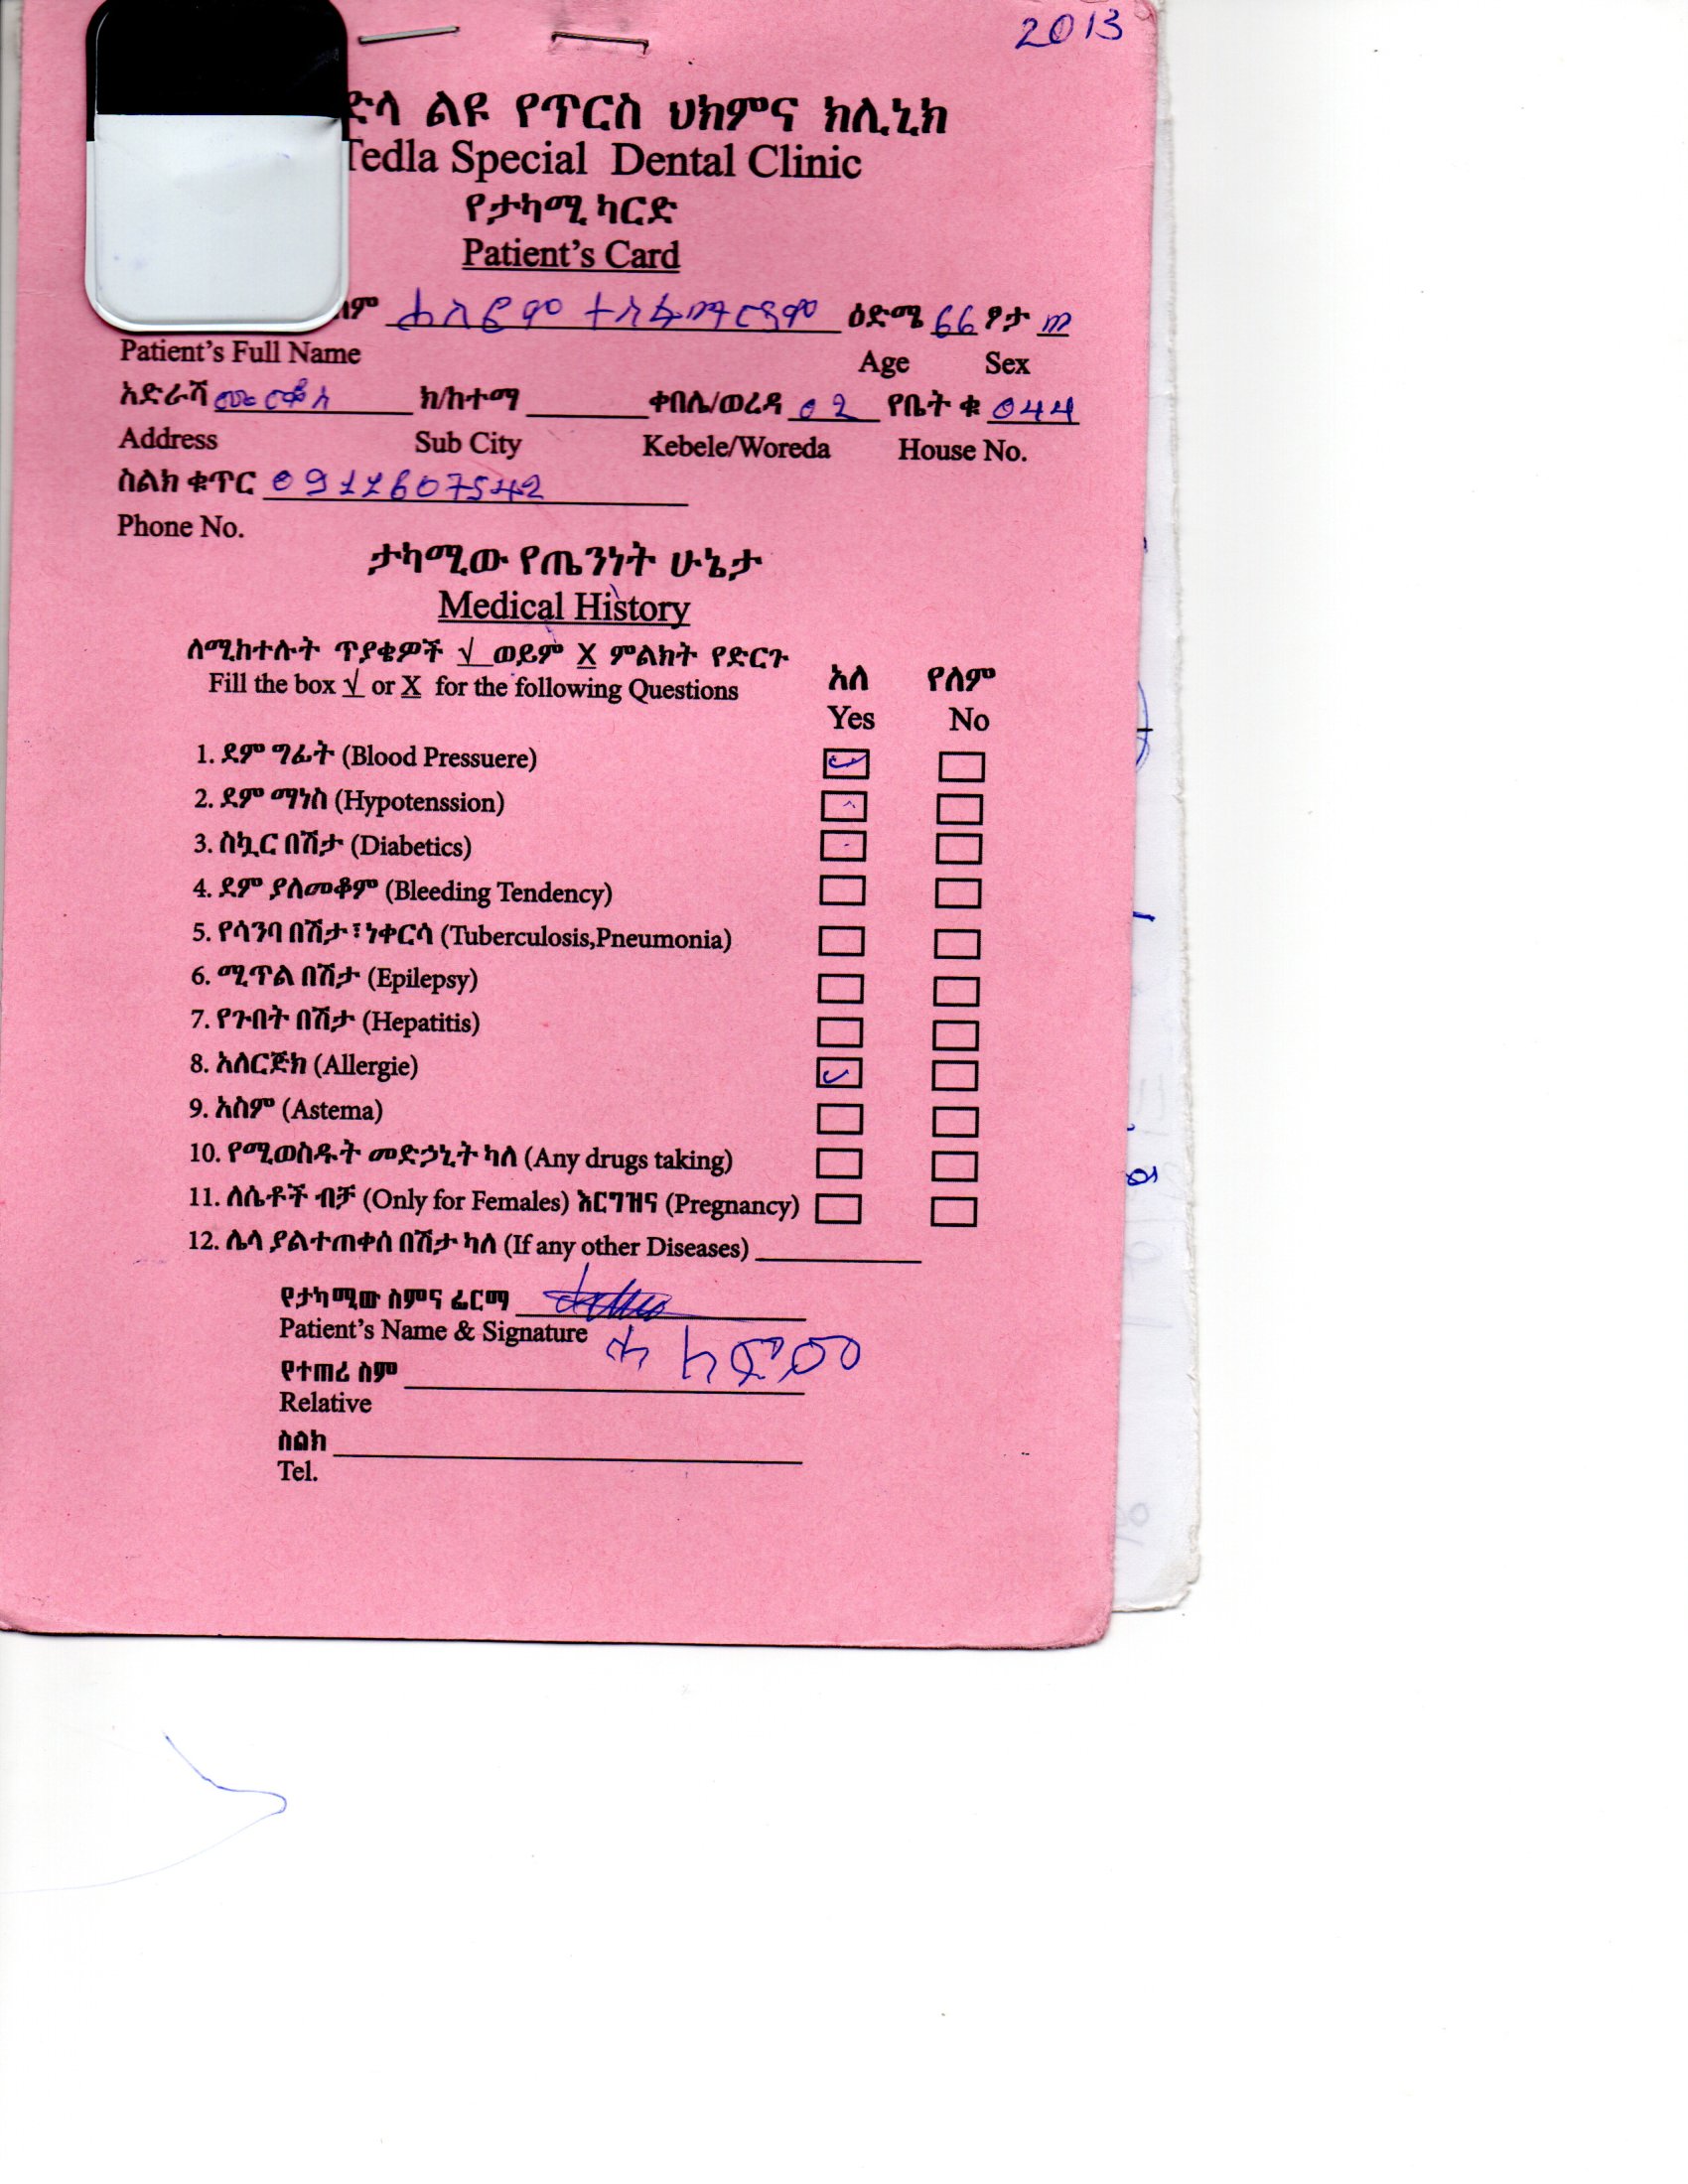 2013
ድላ ልዩ የጥርስ ህክምና ክሊኒክ
Tedla Special Dental Clinic
የታካሚ ካርድ
Patient's Card
ስም ዕድሜ 66 ፆታ m
Patient's Full Name Age Sex
አድራሻ ክ/ከተማ ቀበሌ/ወረዳ 02 የቤት ቁ 044
Address Sub City Kebele/Woreda House No.
ስልክ ቁጥር 0911607542
Phone No.
ታካሚው የጤንነት ሁኔታ
Medical History
ለሚከተሉት ጥያቄዎች √ ወይም X ምልክት የድርጉ
Fill the box √ or X for the following Questions
አለ የለም
Yes No
1. ደም ግፊት (Blood Pressuere) ✓
2. ደም ማነስ (Hypotenssion)
3. ስኳር በሽታ (Diabetics)
4. ደም ያለመቆም (Bleeding Tendency)
5. የሳንባ በሽታ፣ ነቀርሳ (Tuberculosis,Pneumonia)
6. ሚጥል በሽታ (Epilepsy)
7. የጉበት በሽታ (Hepatitis)
8. አለርጅክ (Allergie) ✓
9. አስም (Astema)
10. የሚወስዱት መድኃኒት ካለ (Any drugs taking)
11. ለሴቶች ብቻ (Only for Females) እርግዝና (Pregnancy)
12. ሌላ ያልተጠቀሰ በሽታ ካለ (If any other Diseases)
የታካሚው ስምና ፊርማ
Patient's Name & Signature
የተጠሪ ስም
Relative
ስልክ
Tel.